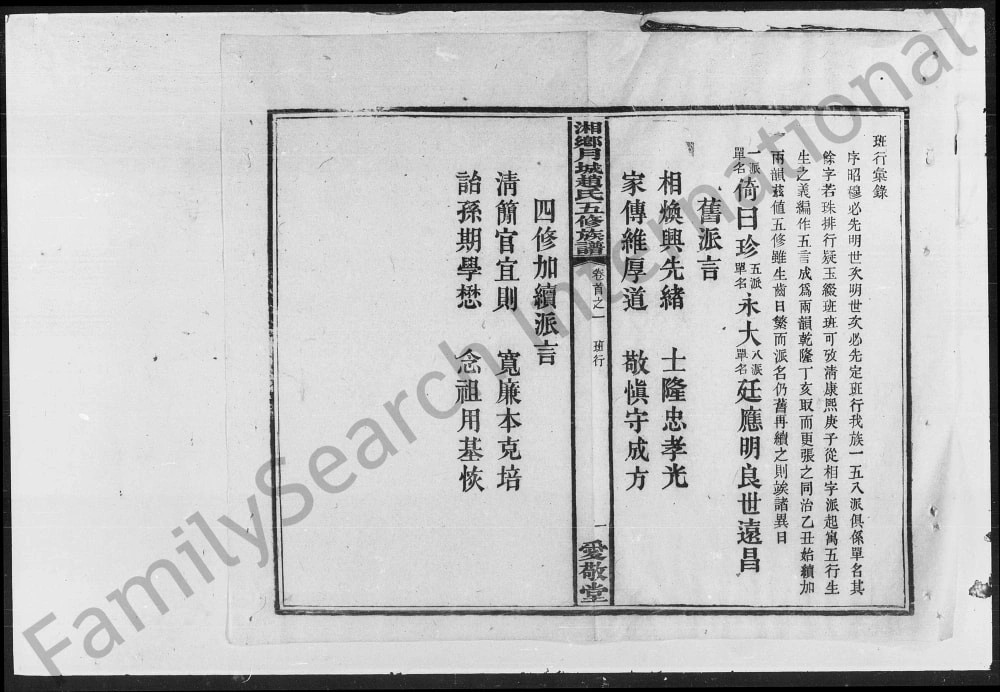 班行彙錄
序昭穆必先明世次明世次必先定班行我族一五八派俱係單名其
餘字若珠排行疑玉綴班班可攷清康熙庚子從相字派起寓五行生
生之義編作五言成爲兩韻乾隆丁亥取而更張之同治乙丑始續加
一兩韻茲值五修雖生齒日繁而派名仍舊再續之則竢諸異日
一派單名倚曰珍五派單名永大八派單名廷應明良世遠昌
舊派言
相煥興先緒 士隆忠孝光
家傳維厚道 敬慎守成方
湘鄉月城趙氏五修族譜 卷首之一 班行 一 愛敬堂
四修加續派言
淸簡官宜則 寬廉本克培
詒孫期學懋 念祖用基恢
FamilySearch International